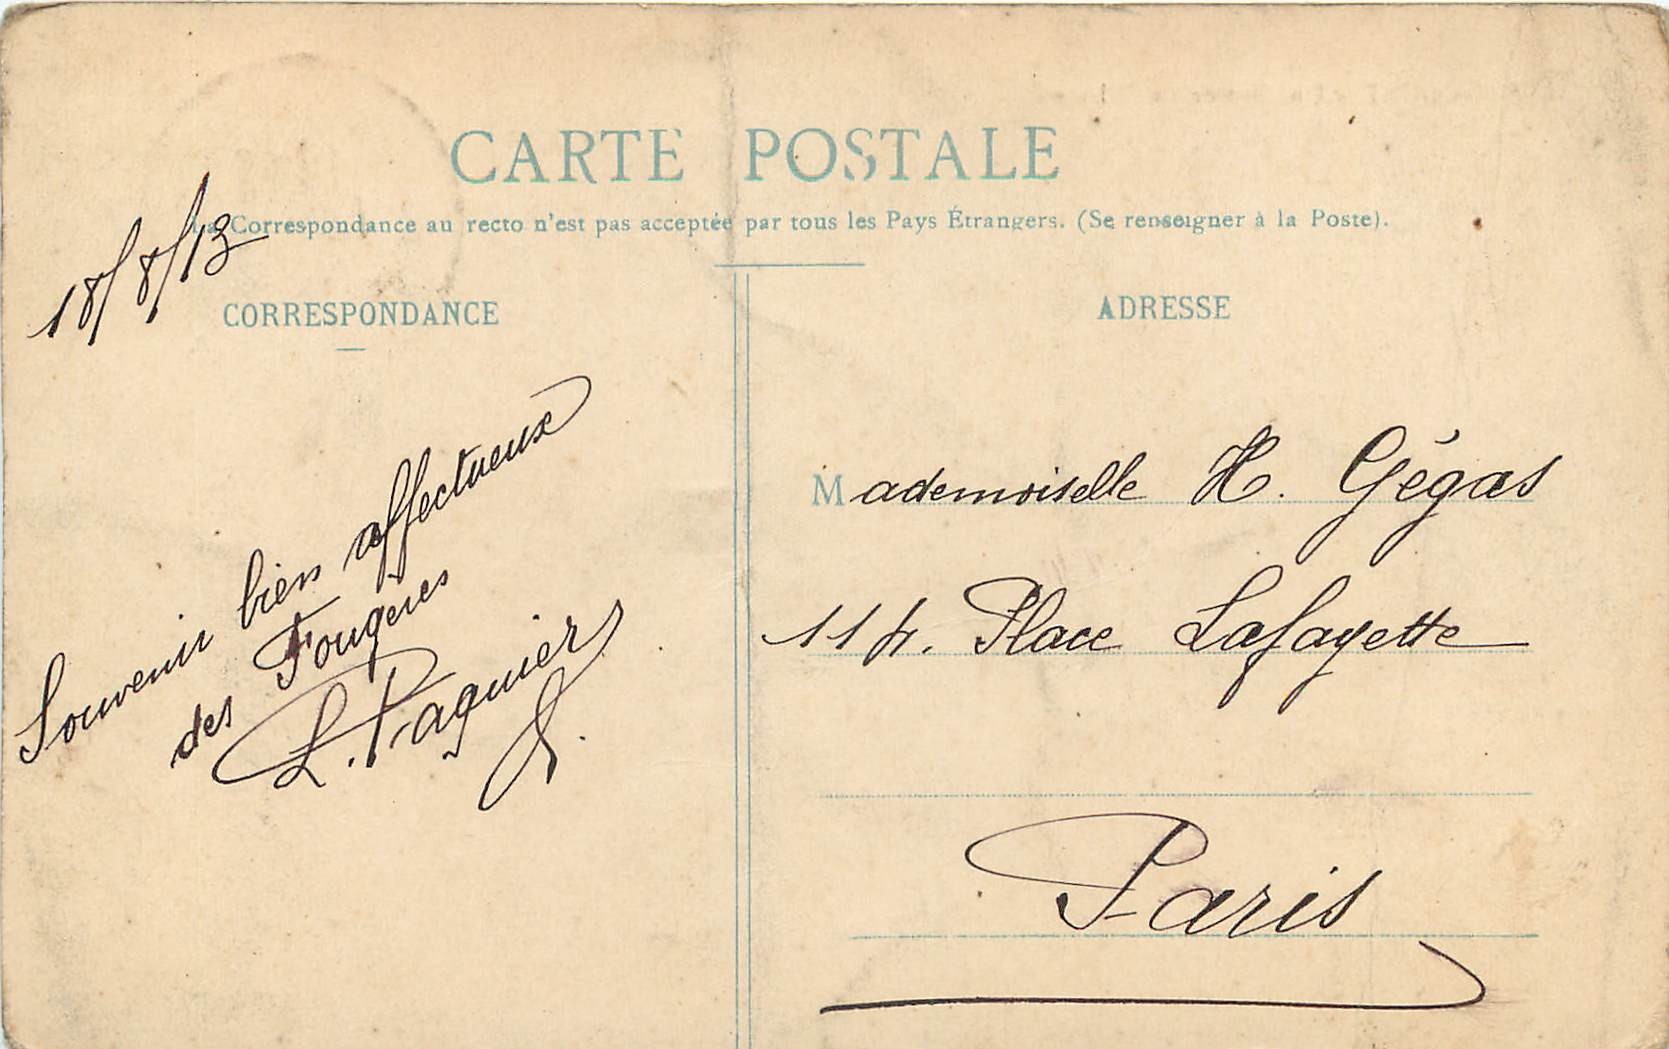 CARTE POSTALE
La Correspondance au recto n'est pas acceptée par tous les Pays Étrangers. (Se renseigner à la Poste).
18/8/13
CORRESPONDANCE
Souvenir bien affectueux
des Fougères
L. Paquier
ADRESSE
Mademoiselle H. Gégas
114. Place Lafayette
Paris